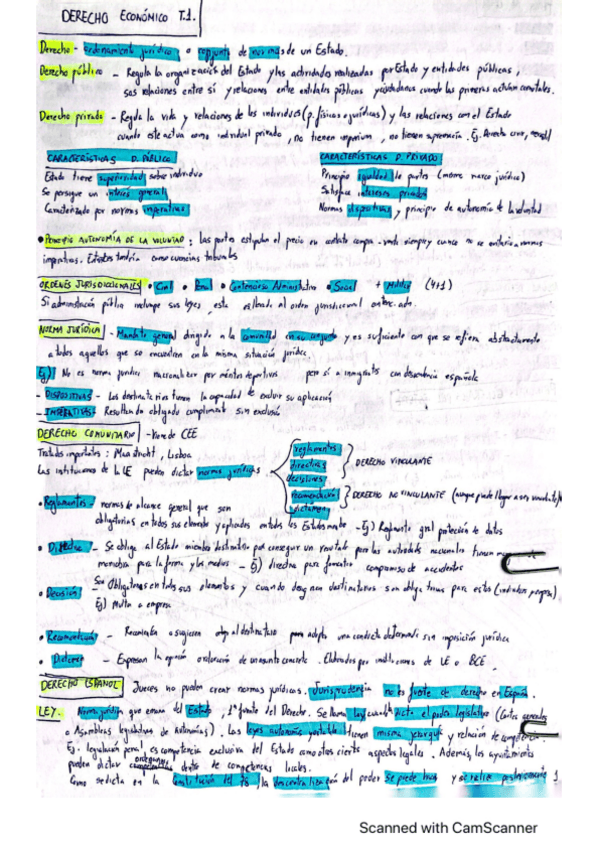 DERECHO ECONÓMICO T.1.
Derecho - ordenamiento jurídico o conjunto de normas de un Estado.
Derecho público - Regula la organización del Estado y las actividades realizadas por Estado y entidades públicas,
sus relaciones entre sí y relaciones entre entidades públicas y ciudadanos cuando las primeras actúan como tales.
Derecho privado - Regula la vida y relaciones de los individuos (p. físicas o jurídicas) y las relaciones con el Estado
cuando este actúa como individuo privado, no tienen imperium, no tienen supremacía. Ej. Derecho civil,
CARACTERÍSTICAS D. PÚBLICO
Estado tiene superioridad sobre individuo
Se persigue un interés general
Caracterizado por normas imperativas
CARACTERÍSTICAS D. PRIVADO
Principio igualdad de partes (mismo marco jurídico)
Satisface intereses privados
Normas dispositivas y principio de autonomía de la voluntad
• PRINCIPIO AUTONOMÍA DE LA VOLUNTAD: las partes estipulan el precio en contrato compra-venta siempre y cuando no se contraríen normas
imperativas. Estados tendría como cuencias tribunales
ORDENES JURISDICCIONALES • Civil • Penal • Contencioso Administrativo • Social + Militar (4+1)
Si administración pública incumple sus leyes, este es llevado al orden jurisdiccional
NORMA JURÍDICA - Mandato general dirigido a la comunidad en su conjunto y es suficiente con que se refiera abstractamente
a todos aquellos que se encuentren en la misma situación jurídica.
Ej) No es norma jurídica nacionalizar por méritos deportivos pero sí a inmigrantes con descendencia española
- DISPOSITIVAS - Los destinatarios tienen la capacidad de excluir su aplicación
- IMPERATIVAS - Resultan de obligado cumplimiento sin exclusión
DERECHO COMUNITARIO - Viene de CEE
Tratados importantes: Maastricht, Lisboa
Las instituciones de la UE pueden dictar normas jurídicas
reglamentos
directivas
decisiones
DERECHO VINCULANTE
recomendación
dictámen
DERECHO NO VINCULANTE (aunque puede llegar a ser vinculante)
• Reglamentos - normas de alcance general que son
obligatorias en todos sus elementos y aplicados en todos los Estados miembro - Ej) Reglamento gral protección de datos
• Directiva - Se obliga al Estado miembro destinatario por conseguir un resultado pero las autoridades nacionales tienen
para la forma y los medios - Ej) directiva para fomentar compromiso de accidentes
• Decisión - Son Obligatorias en todos sus elementos y cuando designan destinatarios son obligatorias para estos
Ej) Multa a empresa
• Recomendación - Recomienda o sugieren al destinatario para adoptar una conducta determinada sin imposición jurídica
• Dictamen - Expresan la opinión o valoración de un asunto concreto. Elaborados por instituciones de UE o BCE.
DERECHO ESPAÑOL Jueces no pueden crear normas jurídicas. Jurisprudencia no es fuente de derecho en España.
LEY. Norma jurídica que emana del Estado, 1ª fuente del Derecho. Se llama ley cuando dicta el poder legislativo (Cortes generales
o Asambleas legislativas de Autonomías). Las leyes autonomía y estatales tienen misma jerarquía y relación de competencia.
Ej. legislación penal, es competencia exclusiva del Estado como otros ciertos aspectos legales. Además, los ayuntamientos
pueden dictar ordenanzas dentro de competencias locales.
Como se dicta en la Constitución del 78, la descentralización del poder se puede hacer y se realiza posteriormente
Scanned with CamScanner